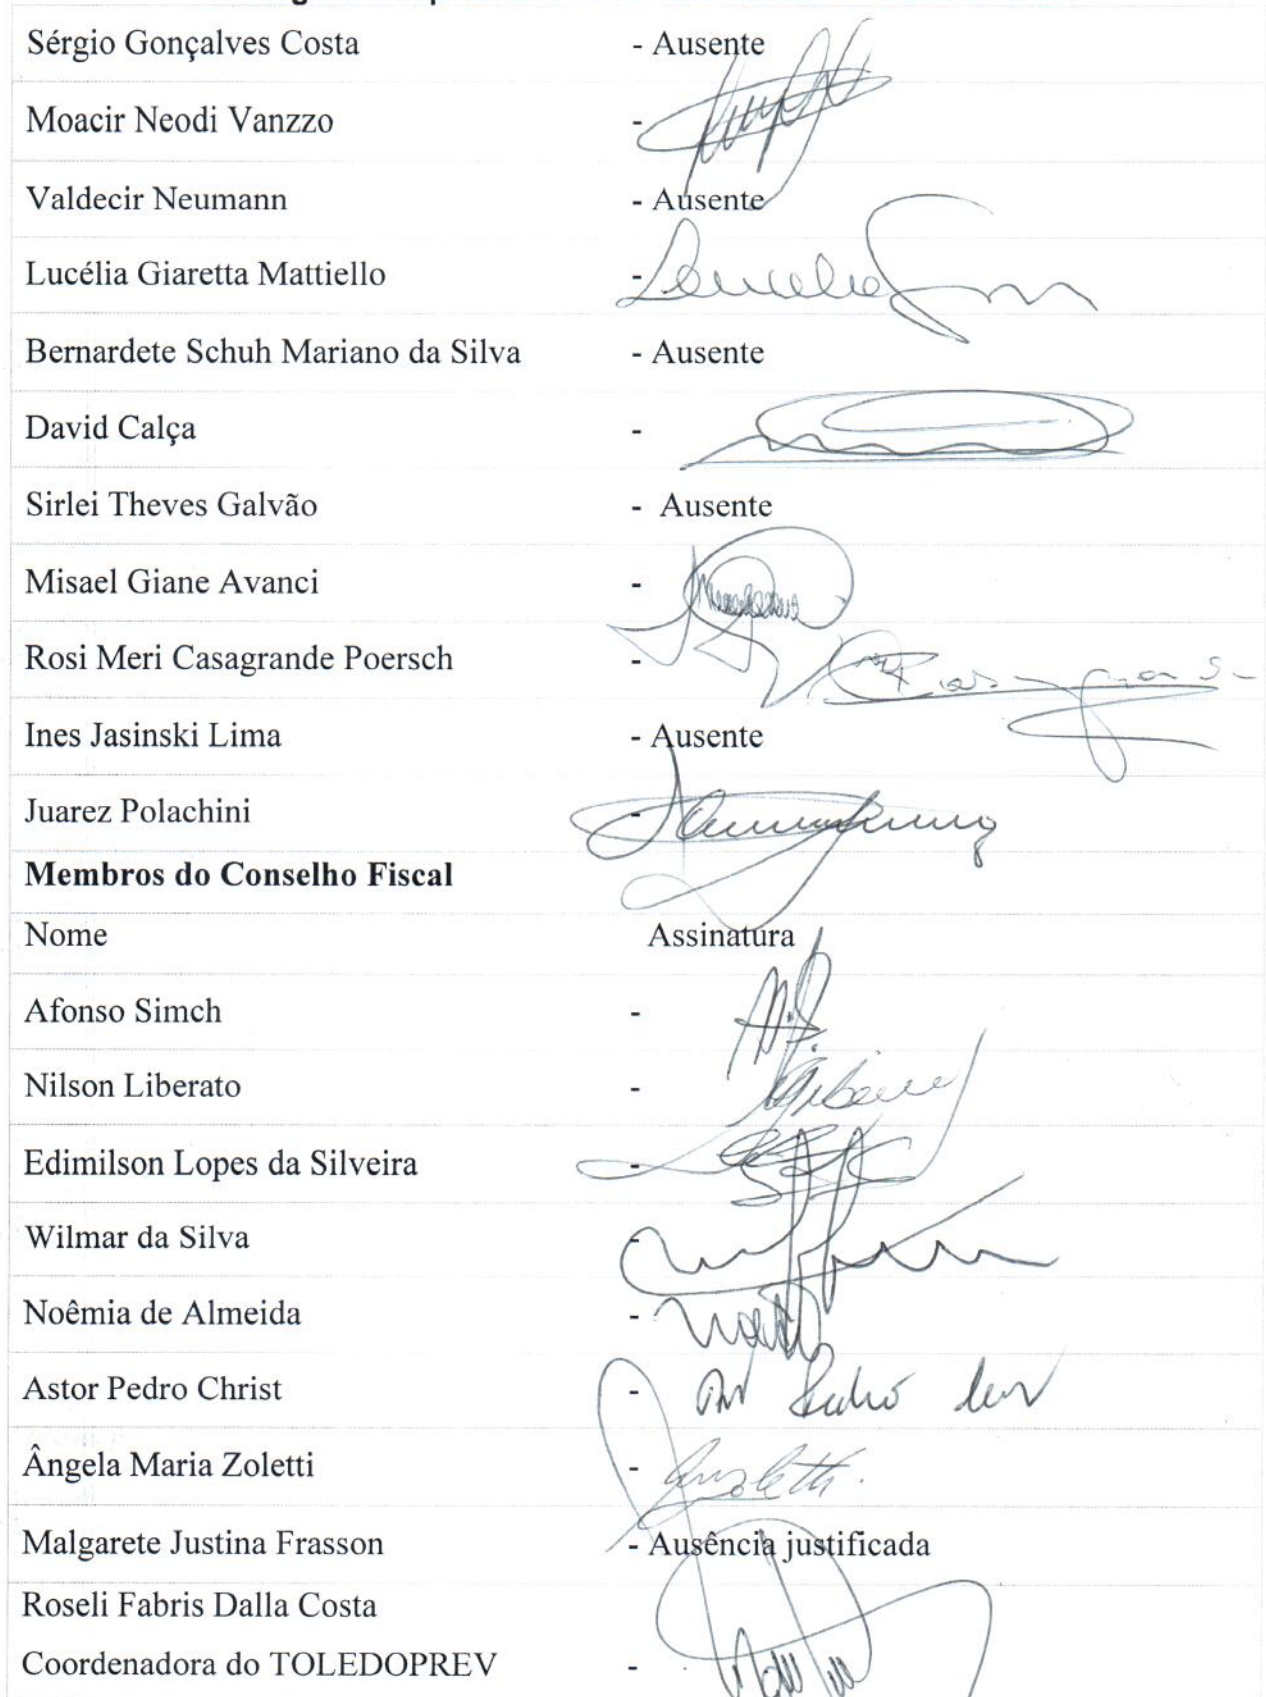 Sérgio Gonçalves Costa - Ausente
Moacir Neodi Vanzzo -
Valdecir Neumann - Ausente
Lucélia Giaretta Mattiello -
Bernardete Schuh Mariano da Silva - Ausente
David Calça -
Sirlei Theves Galvão - Ausente
Misael Giane Avanci -
Rosi Meri Casagrande Poersch -
Ines Jasinski Lima - Ausente
Juarez Polachini -
Membros do Conselho Fiscal
Nome Assinatura
Afonso Simch -
Nilson Liberato -
Edimilson Lopes da Silveira -
Wilmar da Silva -
Noêmia de Almeida -
Astor Pedro Christ - Pedro
Ângela Maria Zoletti -
Malgarete Justina Frasson - Ausência justificada
Roseli Fabris Dalla Costa
Coordenadora do TOLEDOPREV -